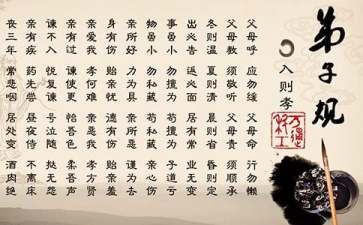 弟子规
入则孝
父母呼 应勿缓 父母命 行勿懒
父母教 须敬听 父母责 须顺承
冬则温 夏则凊 晨则省 昏则定
出必告 返必面 居有常 业无变
事虽小 勿擅为 苟擅为 子道亏
物虽小 勿私藏 苟私藏 亲心伤
亲所好 力为具 亲所恶 谨为去
身有伤 贻亲忧 德有伤 贻亲羞
亲爱我 孝何难 亲恶我 孝方贤
亲有过 谏使更 怡吾色 柔吾声
谏不入 悦复谏 号泣随 挞无怨
亲有疾 药先尝 昼夜侍 不离床
丧三年 常悲咽 居处变 酒肉绝